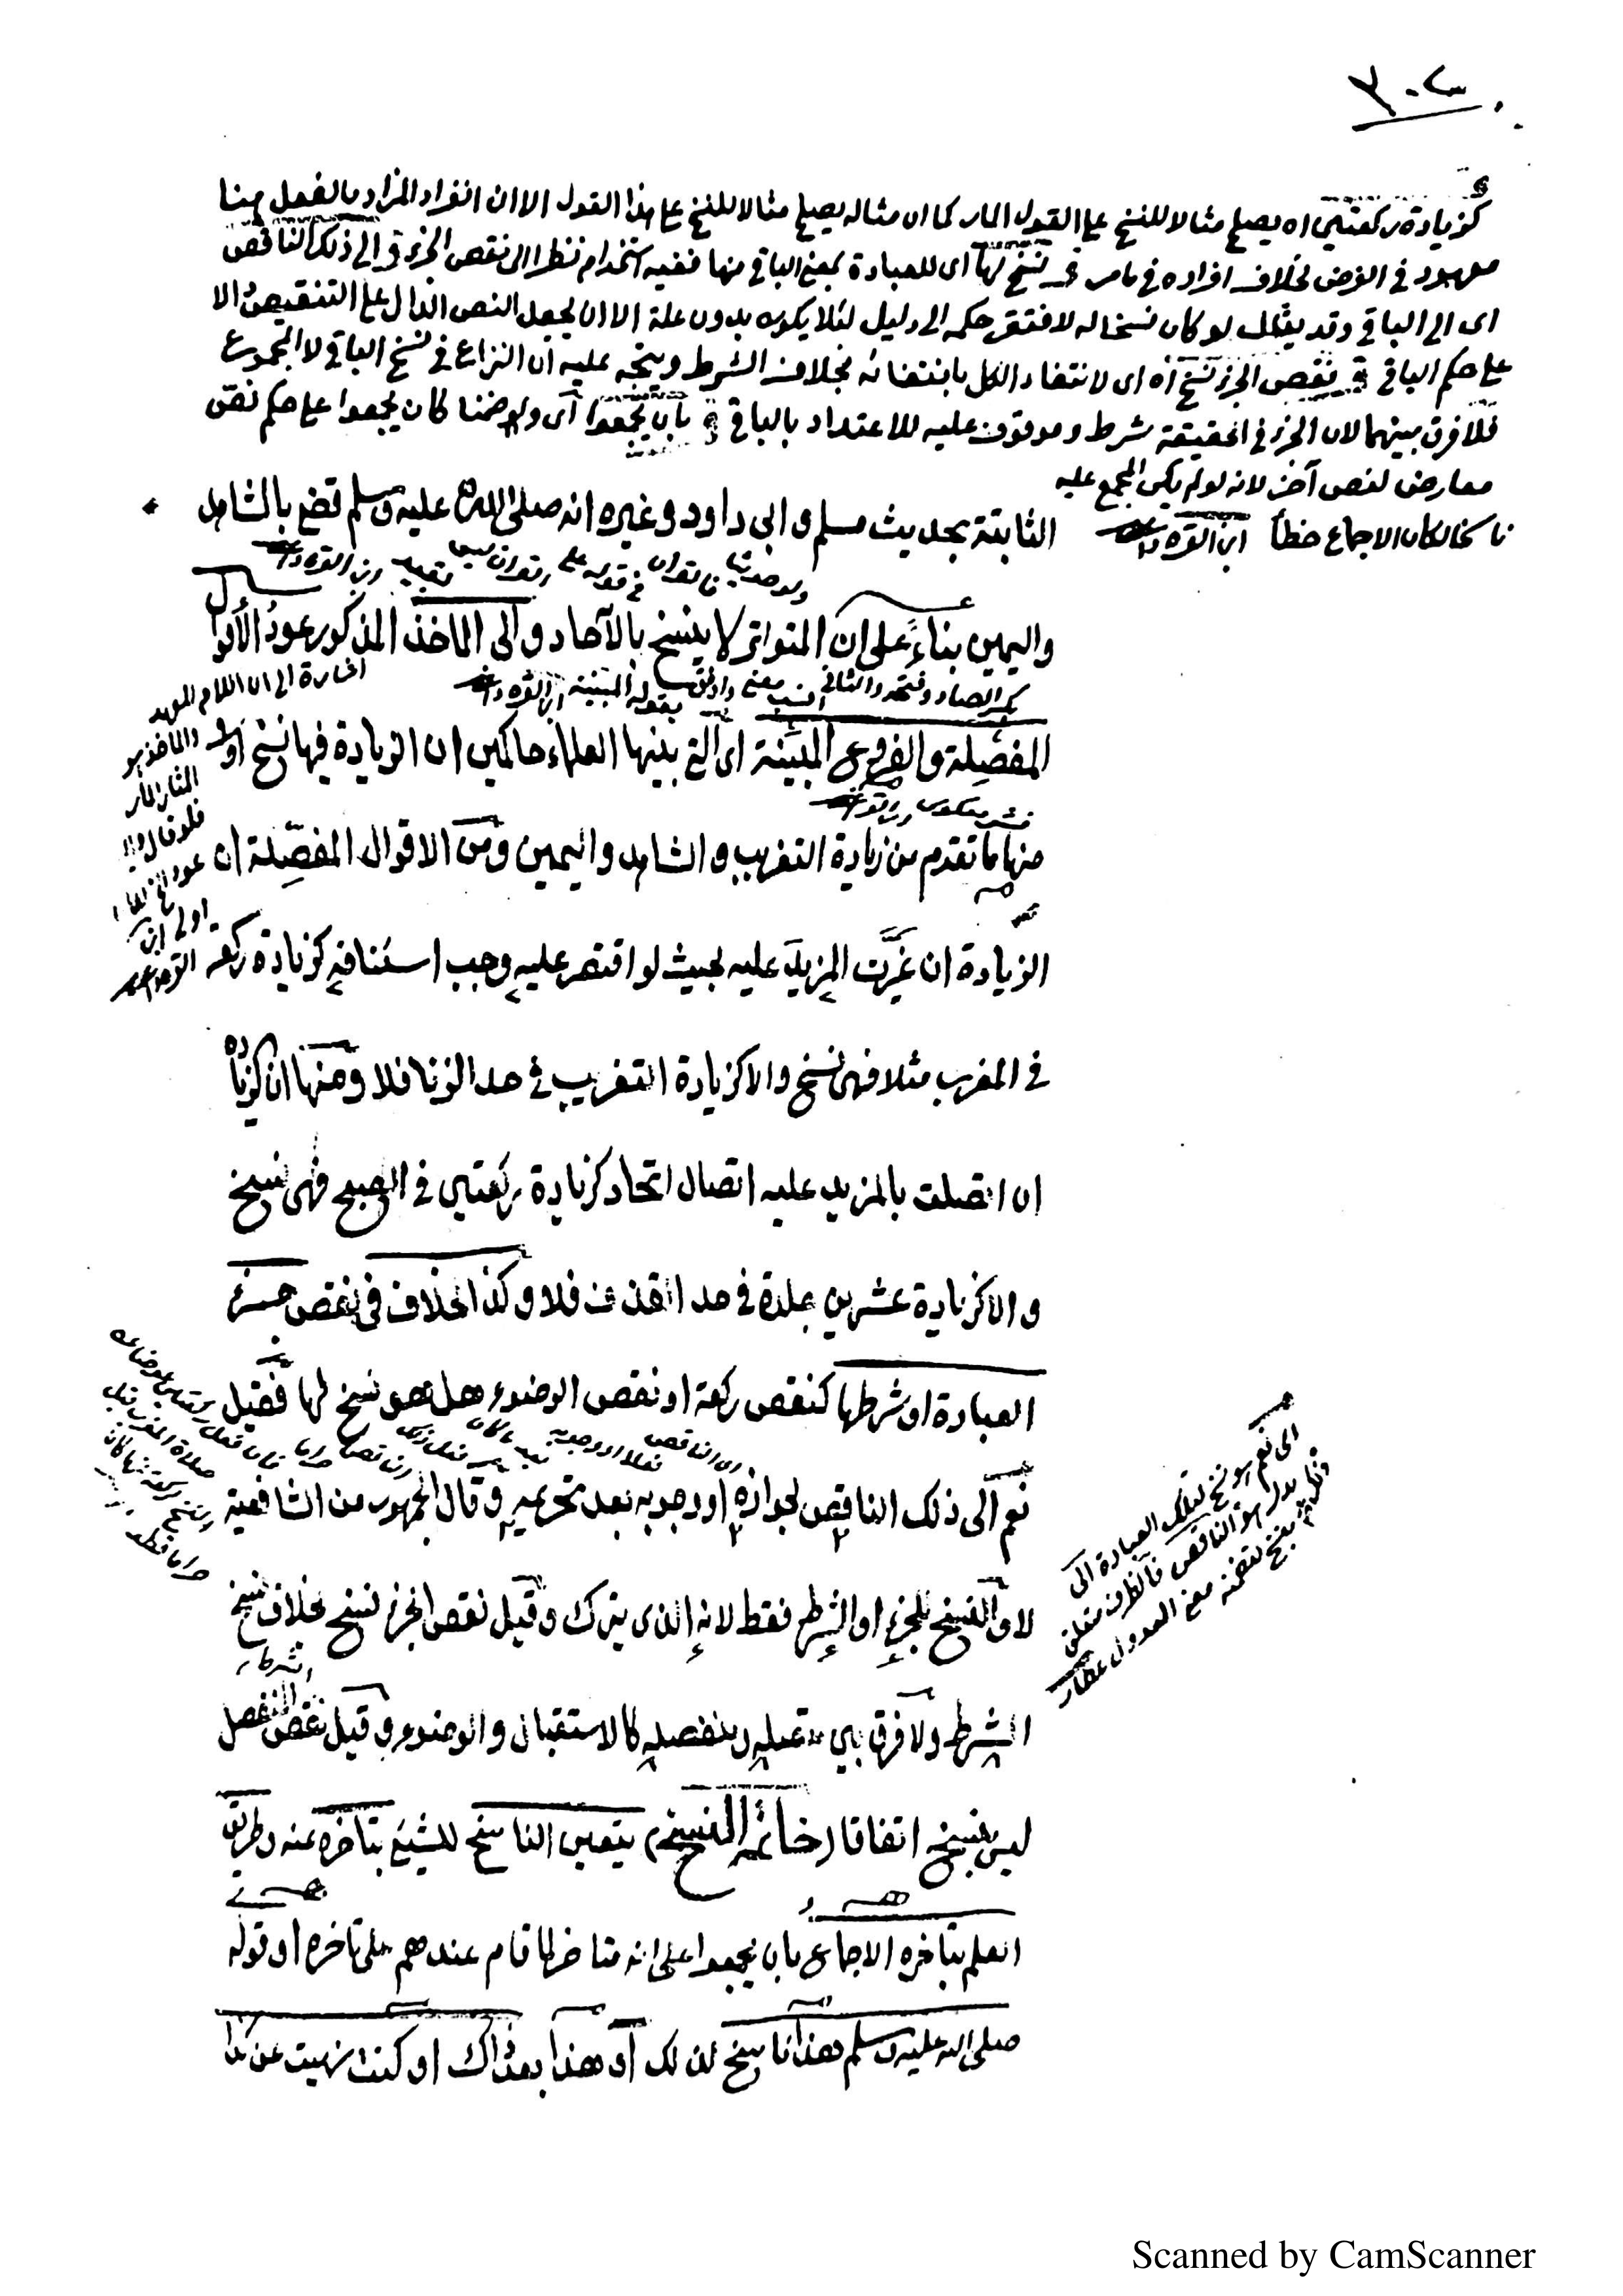 ٣٠٢
كزيادة ركعتين اه يصلح مثالا للنسخ على القول المار كما ان مثاله يصلح مثالا للنسخ على هذا القول الا ان انفراد المزاد بالفعل هنا
معهود في الفرض بخلاف افراده في مامر قـ نسخ لها اى للعبادة بمعنى الباقي منها ففيه استخدام نظرا الى نقص الجزء قـ الى ذلك الناقص
اى الى الباقي وقد يقال لو كان نسخا له لافتقر حكمه الى دليل لئلا يكون بدون علة الا ان يجعل النص الدال على التنقيص دالا
على حكم الباقي قـ نقص الجزء نسخ اه اى لانتفاء الكل بانتفائه بخلاف الشرط ويتجه عليه ان النزاع في نسخ الباقي لا المجموع
فلا فرق بينهما لان الجزء في الحقيقة شرط وموقوف عليه للاعتداد بالباقي قـ بأن يجمعوا اى ولو ضمنا كان يجمعوا على حكم نص
معارض لنص آخر لانه لو لم يكن المجمع عليه
ناسخا لكان الاجماع خطأ ابن القره داغى
الثابتة بحديث مسلم وابى داود وغيره انه صلى الله عليه وسلم قضى بالشاهد
واليمين بناءً على ان المتواتر لا ينسخ بالآحاد والى الماخذ المذكور عودُ الأقوال
بكسر الصاد وفتحه والثاني انسب معنى واوفق بقوله المبينة ابن القره داغى
اشارة الى ان اللام للعهد
والماخذ هو
المثار المار
المفصلة والفروع المبيَّنة اى التى بينها العلماء حاكمين ان الزيادة فيها نسخ اولا
منها ما تقدم من زيادة التغريب والشاهد واليمين ومن الاقوال المفصِّلة ان
الزيادة ان غيَّرت المزيد عليه بحيث لو اقتصر عليه وجب استئنافه كزيادة ركعة
في المغرب مثلا فهى نسخ والا كزيادة التغريب في حد الزنا فلا ومنها ان الزيادة
ان اتصلت بالمزيد عليه اتصال اتحاد كزيادة ركعتين في الصبح فهى نسخ
والا كزيادة عشرين جلدة في حد القذف فلا وكذا الخلاف في نقص جزء
العبادة او شرطها كنقص ركعة او نقص الوضوء هل هو نسخ لها فقيل
نعم الى ذلك الناقص لجوازه او وجوبه بعد تحريمه وقال الجمهور من الشافعية
الى نعم هو نسخ لتلك العبادة الى
بدل هو الناقص فالظرف متعلق
بنسخ لتضمنه معنى العدول عطار
لا والنسخ للجزء او الشرط فقط لانه الذى يترك وقيل نقص الجزء نسخ بخلاف نسخ
الشرط ولا فرق بين متصله ومنفصله كالاستقبال والوضوء وقيل نقص المنفصل
ليس بنسخ اتفاقا (خاتمة النسخ) يتعين الناسخ للشيئ بتأخره عنه وطريق
العلم بتاخره الاجماع بان يجمعوا على انه متاخر لما قام عندهم على تأخره او قوله
صلى الله عليه وسلم هذا ناسخ لذلك او هذا بعد ذاك او كنت نهيت عن كذا
Scanned by CamScanner